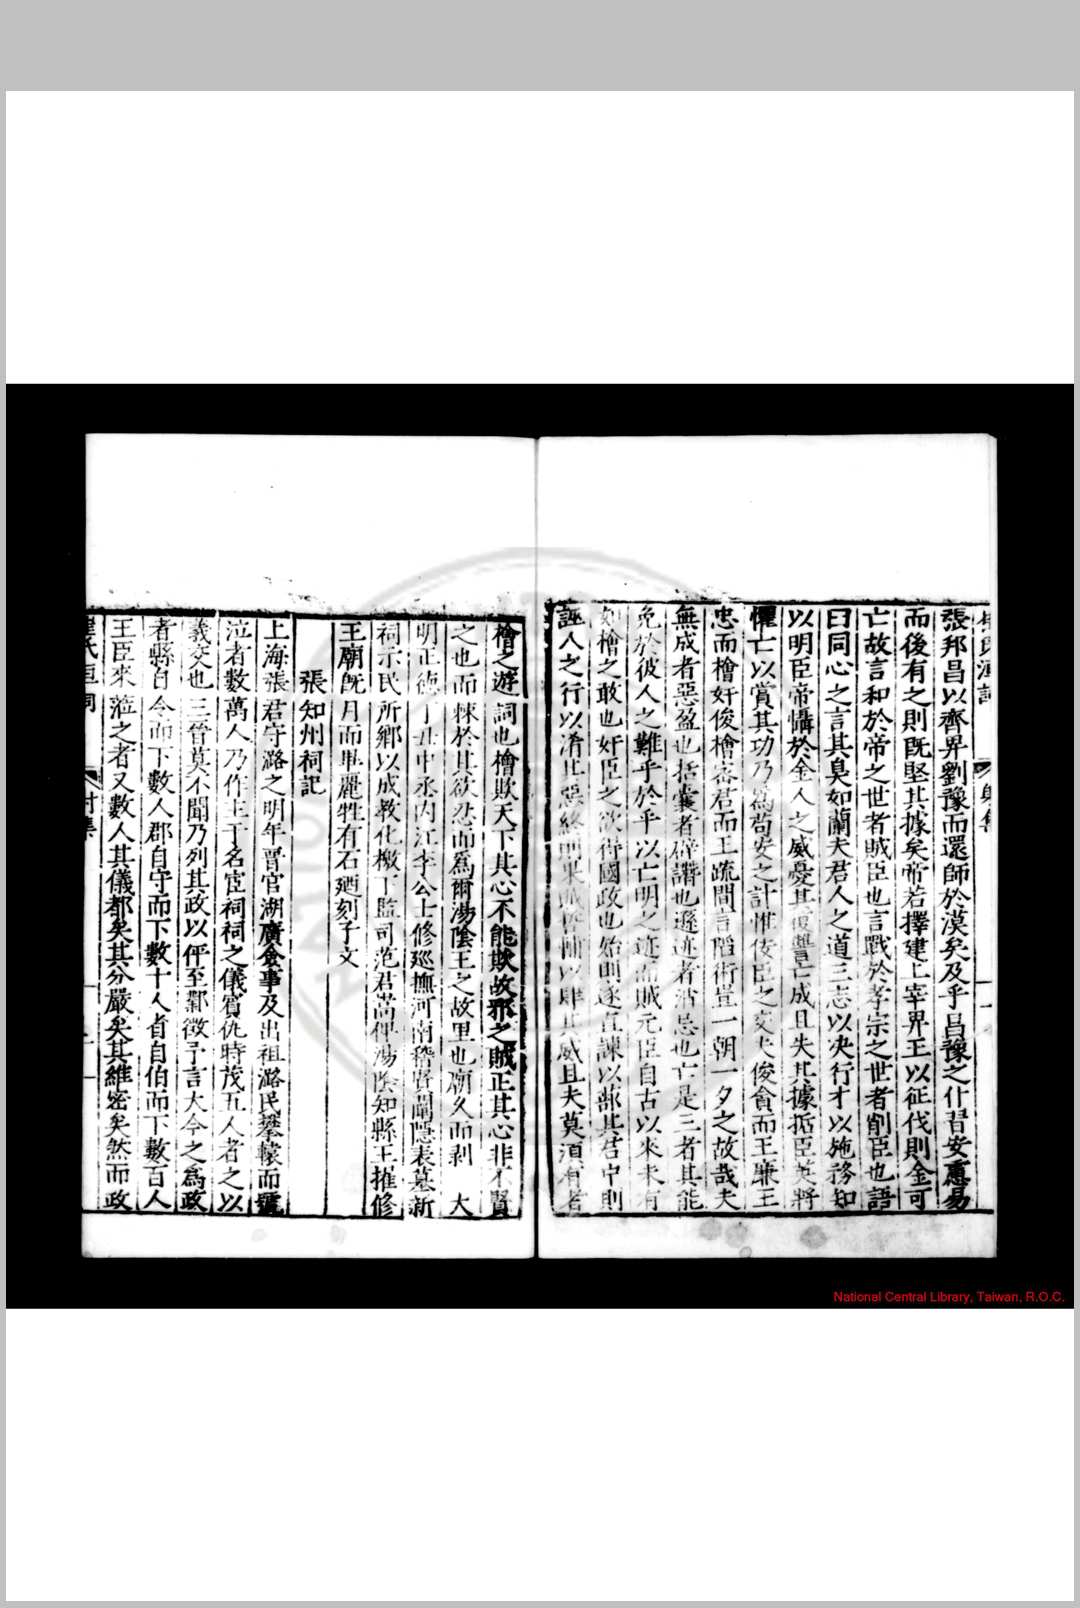 張邦昌以齊畀劉豫而還師於漠矣及乎昌豫之什習安蕙易
而後有之則既堅其據矣帝若擇建上宰畀王以征伐則金可
亡故言和於帝之世者賊臣也言戰於孝宗之世者削臣也語
曰同心之言其臭如蘭夫君人之道三志以决行才以施務知
以明臣帝懾於金人之威憂其復讐亡成且失其據拓臣英將
懼亡以賞其功乃為苟安之計惟佞臣之交夫俊貪而王廉王
忠而檜奸俊檜密君而王疏間言陷術豈一朝一夕之故哉夫
無成者惡盈也括囊者辟讒也遜迹者沽忌也亡是三者其能
免於彼人之難乎於乎以亡明之迹而賊元臣自古以來未有
如檜之敢也奸臣之欲得國政也始則遂直諫以蔀其君中則
誣人之行以淆其惡終則果賊以肆其威且夫莫須有者
檜之遊詞也檜欺天下其心不能欺故邪之賊正其心非不賢
之也而棘於其欲忍而為爾湯陰王之故里也廟久而剥 大
明正德丁丑中丞内江李公士修廵撫河南稽實闡隱表墓新
祠示民所鄉以成教化檄下監司范君嵩俾湯陰知縣王摧修
王廟既月而畢麗牲有石廼刻予文
張知州祠記
上海張君守潞之明年晋官湖廣僉事及出祖潞民攀轅而號
泣者數萬人乃作主于名宦祠祠之儀賓仇時茂五人者之以
義交也三晉莫不聞乃列其政以伻至鄴徵予言大令之為政
者縣自令而下數人郡自守而下數十人省自伯而下數百人
王臣來蒞之者又數人其儀都矣其分嚴矣其維密矣然而政
崔氏洹詞
附集